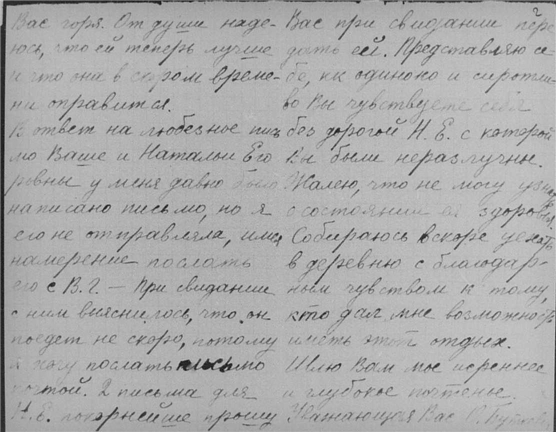 Вас горя. От души наде-
юсь, что ей теперь лучше
и что она в скором време-
ни оправится.
В ответ на любезное пись
мо Ваше и Натальи Его
ровны у меня давно было
написано письмо, но я
его не отправляла, имея
намерение послать
его с В. Г. — При свидании
с ним выяснилось, что он
поедет не скоро, потому
я могу послать письмо
почтой. 2 письма для
Н. Е. покорнейше прошу
2
Вас при свидании пере
дать ей. Представляю се
бе, как одиноко и сиротли
во Вы чувствуете себя
без дорогой Н. Е. с которой
Вы были неразлучны.
Жалею, что не могу узнать
о состоянии её здоровья.
Собираюсь вскоре уехать
в деревню с благодар-
ным чувством к тому,
кто дал мне возможность
иметь этот отдых.
Шлю Вам мое искреннее
и глубокое почтенье.
Уважающая Вас